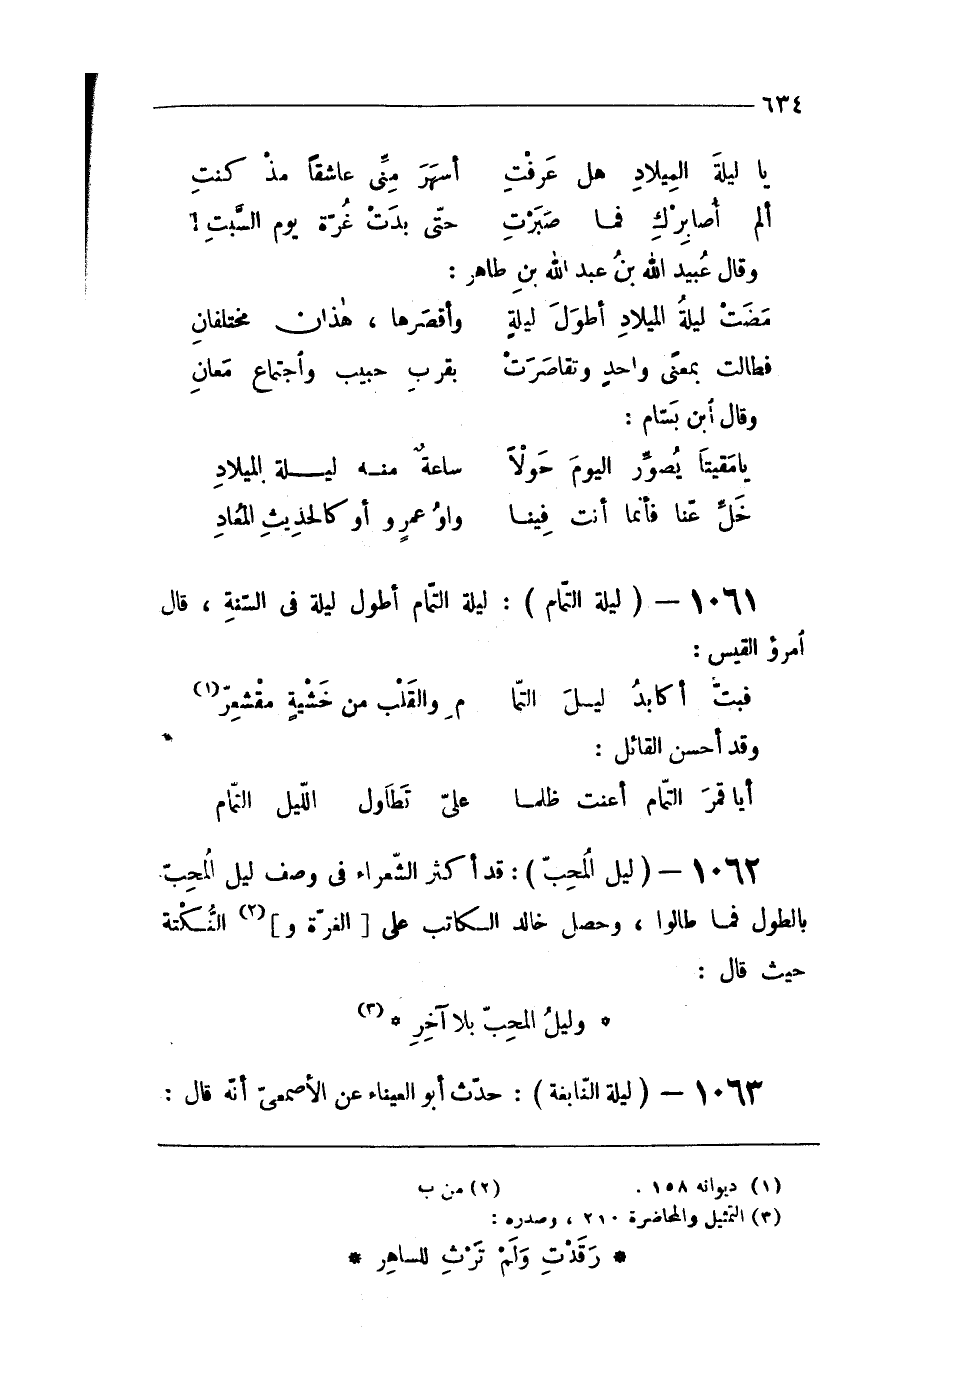 ٦٣٤
يا ليلةَ المِيلادِ هل عَرفْتِ أسهَرَ مِنِّى عاشقًا مذْ كنتِ
ألم أُصابِرْكِ فمـا صَبَرْتِ حتّى بدَتْ غُرّة يوم السَّبتِ !
وقال عُبيد الله بنُ عبد الله بنِ طاهر :
مَضَتْ ليلةُ الميلادِ أطوَلَ ليلةٍ وأقصَرها ، هٰذان مختلفانِ
فطالت بمعنًى واحدٍ وتقاصَرَتْ بقربِ حبيب وأجتماع مَعانِ
وقال أبن بَسّام :
يامَقيتًا يُصوِّر اليومَ حَوْلاً ساعةٌ منـه ليـلة الميلادِ
خَلِّ عّنا فأنما أنت فِينـا واوُ عمرٍو أو كالحذِيثِ المُعادِ
١٠٦١ – ( ليلة التّمام ) : ليلة التّمام أطول ليلة فى السّنةِ ، قال
أمرؤ القيس :
فبتُّ أكابدُ ليـلَ التّما مِ والقَلْب من خَشْيةٍ مقْشعِرّ (١)
وقد أحسن القائل :
أيا قمرَ التّمام أعنت ظلمـا علىّ تَطَاول اللّيل التّمام
١٠٦٢ – ( ليل المُحِبّ ) : قد أكثر الشّعراء فى وصف ليل المُحِبّ
بالطول فمـا طالوا ، وحصل خالد الـكاتب على [ الغرّة و ] (٢) النُّـكْتة
حيث قال :
* وليلُ المحِبّ بلا آخِرِ * (٣)
١٠٦٣ – ( ليلة النّابغة ) : حدّث أبو العيناء عن الأصمعىّ أنّه قال :
(١) ديوانه ١٥٨ . (٢) من ب
(٣) التمثيل والمحاضرة ٢١٠ ، وصدره :
* رَقَدْتِ وَلَمْ تَرْثِ للساهِرِ *